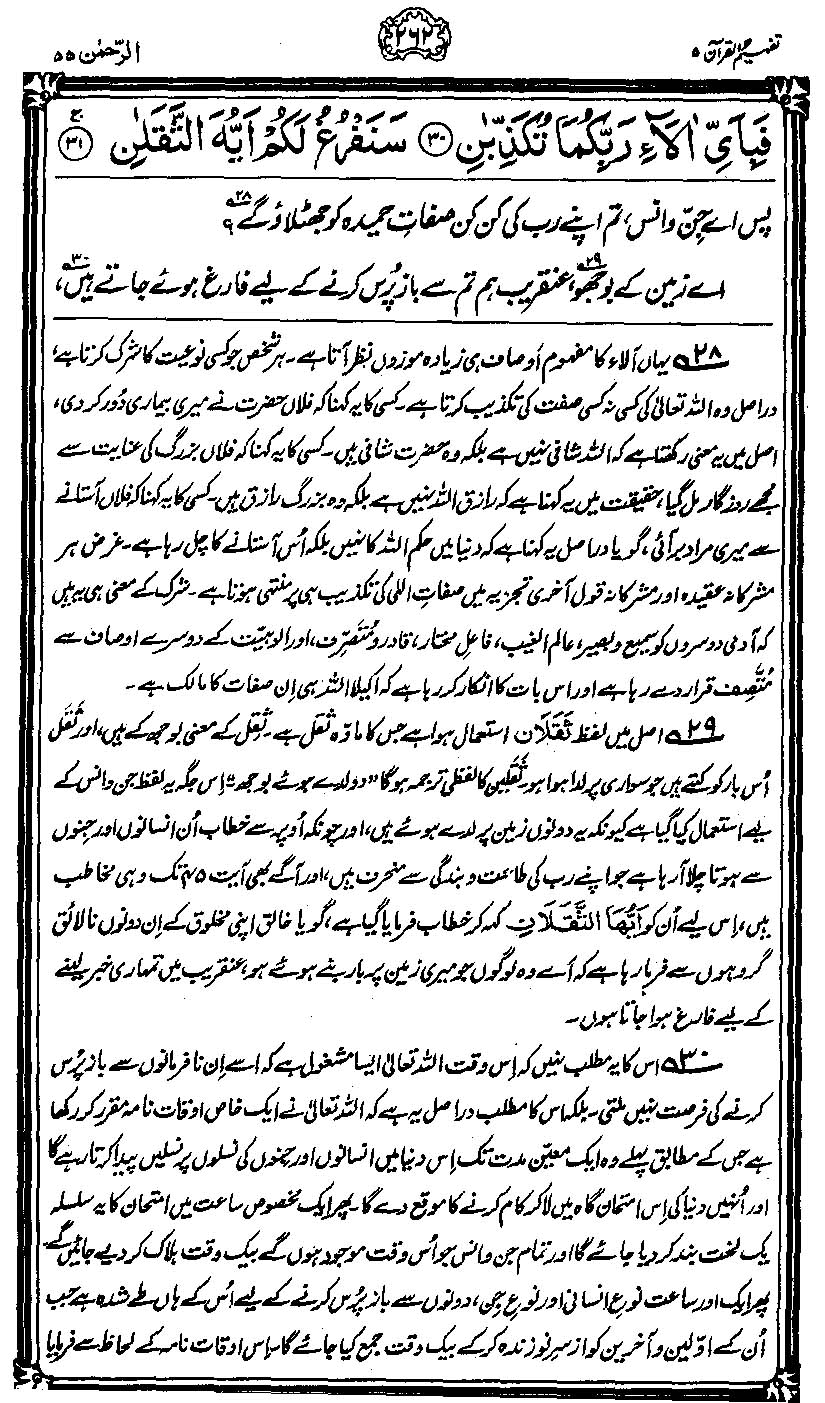 تفہیم القرآن ۵
۲۶۲
الرّحمٰن ۵۵
فَبِاَیِّ اٰلَآءِ رَبِّکُمَا تُکَذِّبٰنِ ۳۰ سَنَفْرُغُ لَکُمْ اَیُّهَ الثَّقَلٰنِ ۳۱ ج
پس اے جِنّ و انس، تم اپنے رب کی کن کن صفاتِ حمیدہ کو جھٹلاؤ گے؟ ۲۸
اے زمین کے بوجھو،۲۹ عنقریب ہم تم سے باز پُرس کرنے کے لیے فارغ ہوئے جاتے ہیں،۳۰
۲۸ یہاں آلاء کا مفہوم اَوصاف ہی زیادہ موزوں نظر آتا ہے۔ ہر شخص جو کسی نوعیت کا شرک کرتا ہے،
دراصل وہ اللہ تعالیٰ کی کسی نہ کسی صفت کی تکذیب کرتا ہے۔ کسی کا یہ کہنا کہ فلاں حضرت نے میری بیماری دُور کر دی،
اصل میں یہ معنی رکھتا ہے کہ اللہ شافی نہیں ہے بلکہ وہ حضرت شافی ہیں۔ کسی کا یہ کہنا کہ فلاں بزرگ کی عنایت سے
مجھے روزگار مل گیا، حقیقت میں یہ کہنا ہے کہ رازق اللہ نہیں ہے بلکہ وہ بزرگ رازق ہیں۔ کسی کا یہ کہنا کہ فلاں آستانے
سے میری مراد بر آئی، گویا دراصل یہ کہنا ہے کہ دنیا میں حکم اللہ کا نہیں بلکہ اُس آستانے کا چل رہا ہے۔ غرض ہر
مشرکانہ عقیدہ اور مشرکانہ قول آخری تجزیہ میں صفاتِ الٰہی کی تکذیب ہی پر منتہی ہوتا ہے۔ شرک کے معنی ہی یہ ہیں
کہ آدمی دوسروں کو سمیع و بصیر، عالم الغیب، فاعلِ مختار، قادر و مُتَصَرِّف، اور الوہیّت کے دوسرے اوصاف سے
مُتَّصِف قرار دے رہا ہے اور اس بات کا انکار کر رہا ہے کہ اکیلا اللہ ہی اِن صفات کا مالک ہے۔
۲۹ اصل میں لفظ ثَقَلَان استعمال ہوا ہے جس کا مادّہ ثقل ہے۔ ثِقل کے معنی بوجھ کے ہیں، اور ثَقَل
اُس بار کو کہتے ہیں جو سواری پر لدا ہوا ہو۔ ثَقَلین کا لفظی ترجمہ ہوگا ”دو لدے ہوئے بوجھ“۔ اِس جگہ یہ لفظ جن و انس کے
لیے استعمال کیا گیا ہے کیونکہ یہ دونوں زمین پر لدے ہوئے ہیں، اور چونکہ اُوپر سے خطاب اُن انسانوں اور جنوں
سے ہوتا چلا آ رہا ہے جو اپنے رب کی طاعت و بندگی سے منحرف ہیں، اور آگے بھی آیت ۴۵ تک وہی مخاطب
ہیں، اِس لیے اُن کو اَیُّهَا الثَّقَلَانِ کہہ کر خطاب فرمایا گیا ہے، گویا خالق اپنی مخلوق کے اِن دونوں نالائق
گروہوں سے فرما رہا ہے کہ اَے وہ لوگوں جو میری زمین پر بار بنے ہوئے ہو، عنقریب میں تمہاری خبر لینے
کے لیے فارغ ہوا جاتا ہوں۔
۳۰ اس کا یہ مطلب نہیں کہ اِس وقت اللہ تعالیٰ ایسا مشغول ہے کہ اسے اِن نافرمانوں سے باز پُرس
کرنے کی فرصت نہیں ملتی۔ بلکہ اس کا مطلب دراصل یہ ہے کہ اللہ تعالیٰ نے ایک خاص اوقات نامہ مقرر کر رکھا
ہے جس کے مطابق پہلے وہ ایک معیّن مدت تک اِس دنیا میں انسانوں اور جنوں کی نسلوں پر نسلیں پیدا کرتا رہے گا
اور اُنہیں دنیا کی اِس امتحان گاہ میں لا کر کام کرنے کا موقع دے گا۔ پھر ایک مخصوص ساعت میں امتحان کا یہ سلسلہ
یک لخت بند کر دیا جائے گا اور تمام جن و انس جو اُس وقت موجود ہوں گے بیک وقت ہلاک کر دیے جائیں گے۔
پھر ایک اور ساعت نوعِ انسانی اور نوعِ جن، دونوں سے باز پُرس کرنے کے لیے اُس کے ہاں طے شدہ ہے جب
اُن کے اوّلین و آخرین کو از سرِ نو زندہ کر کے بیک وقت جمع کیا جائے گا۔ اِس اوقات نامہ کے لحاظ سے فرمایا